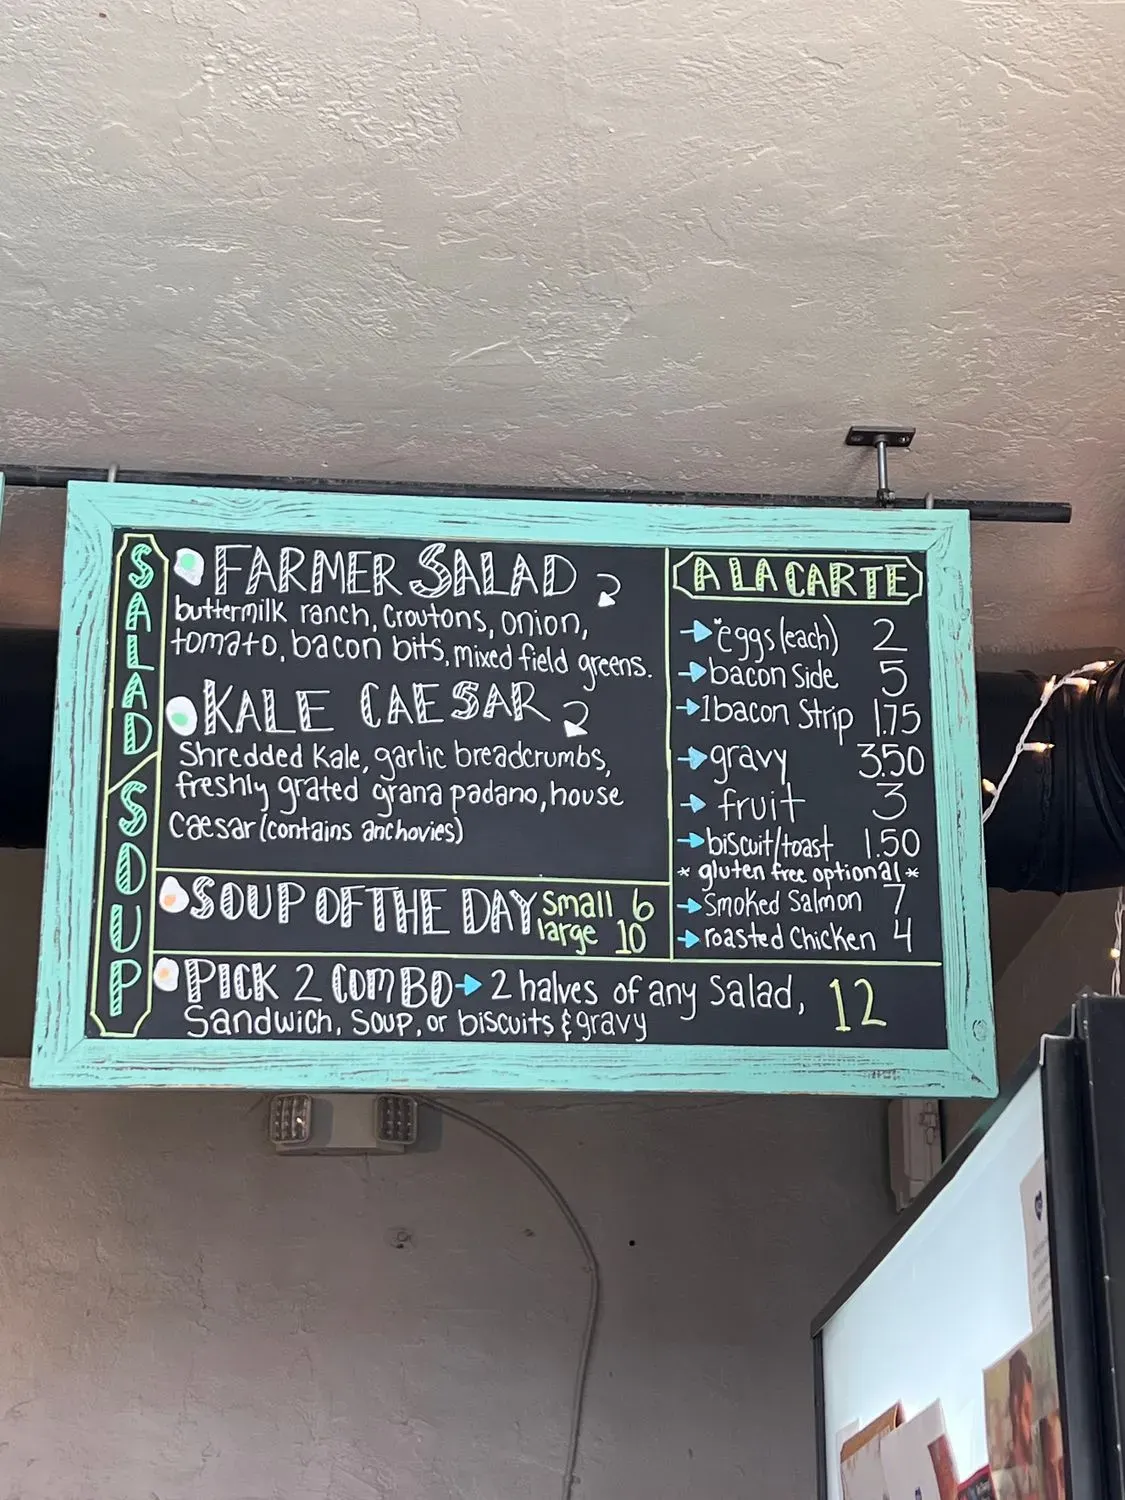 SALAD/SOUP
FARMER SALAD
buttermilk ranch, Croutons, onion,
tomato, bacon bits, mixed field greens.
KALE CAESAR
Shredded Kale, garlic breadcrumbs,
freshly grated grana padano, house
Caesar (contains anchovies)
SOUP OF THE DAY small 6
large 10
PICK 2 COMBO → 2 halves of any Salad, 12
Sandwich, Soup, or biscuits & gravy
A LA CARTE
→ *eggs (each) 2
→ bacon Side 5
→ 1 bacon Strip 1.75
→ gravy 3.50
→ fruit 3
→ biscuit/toast 1.50
* gluten free optional *
→ Smoked Salmon 7
→ roasted Chicken 4